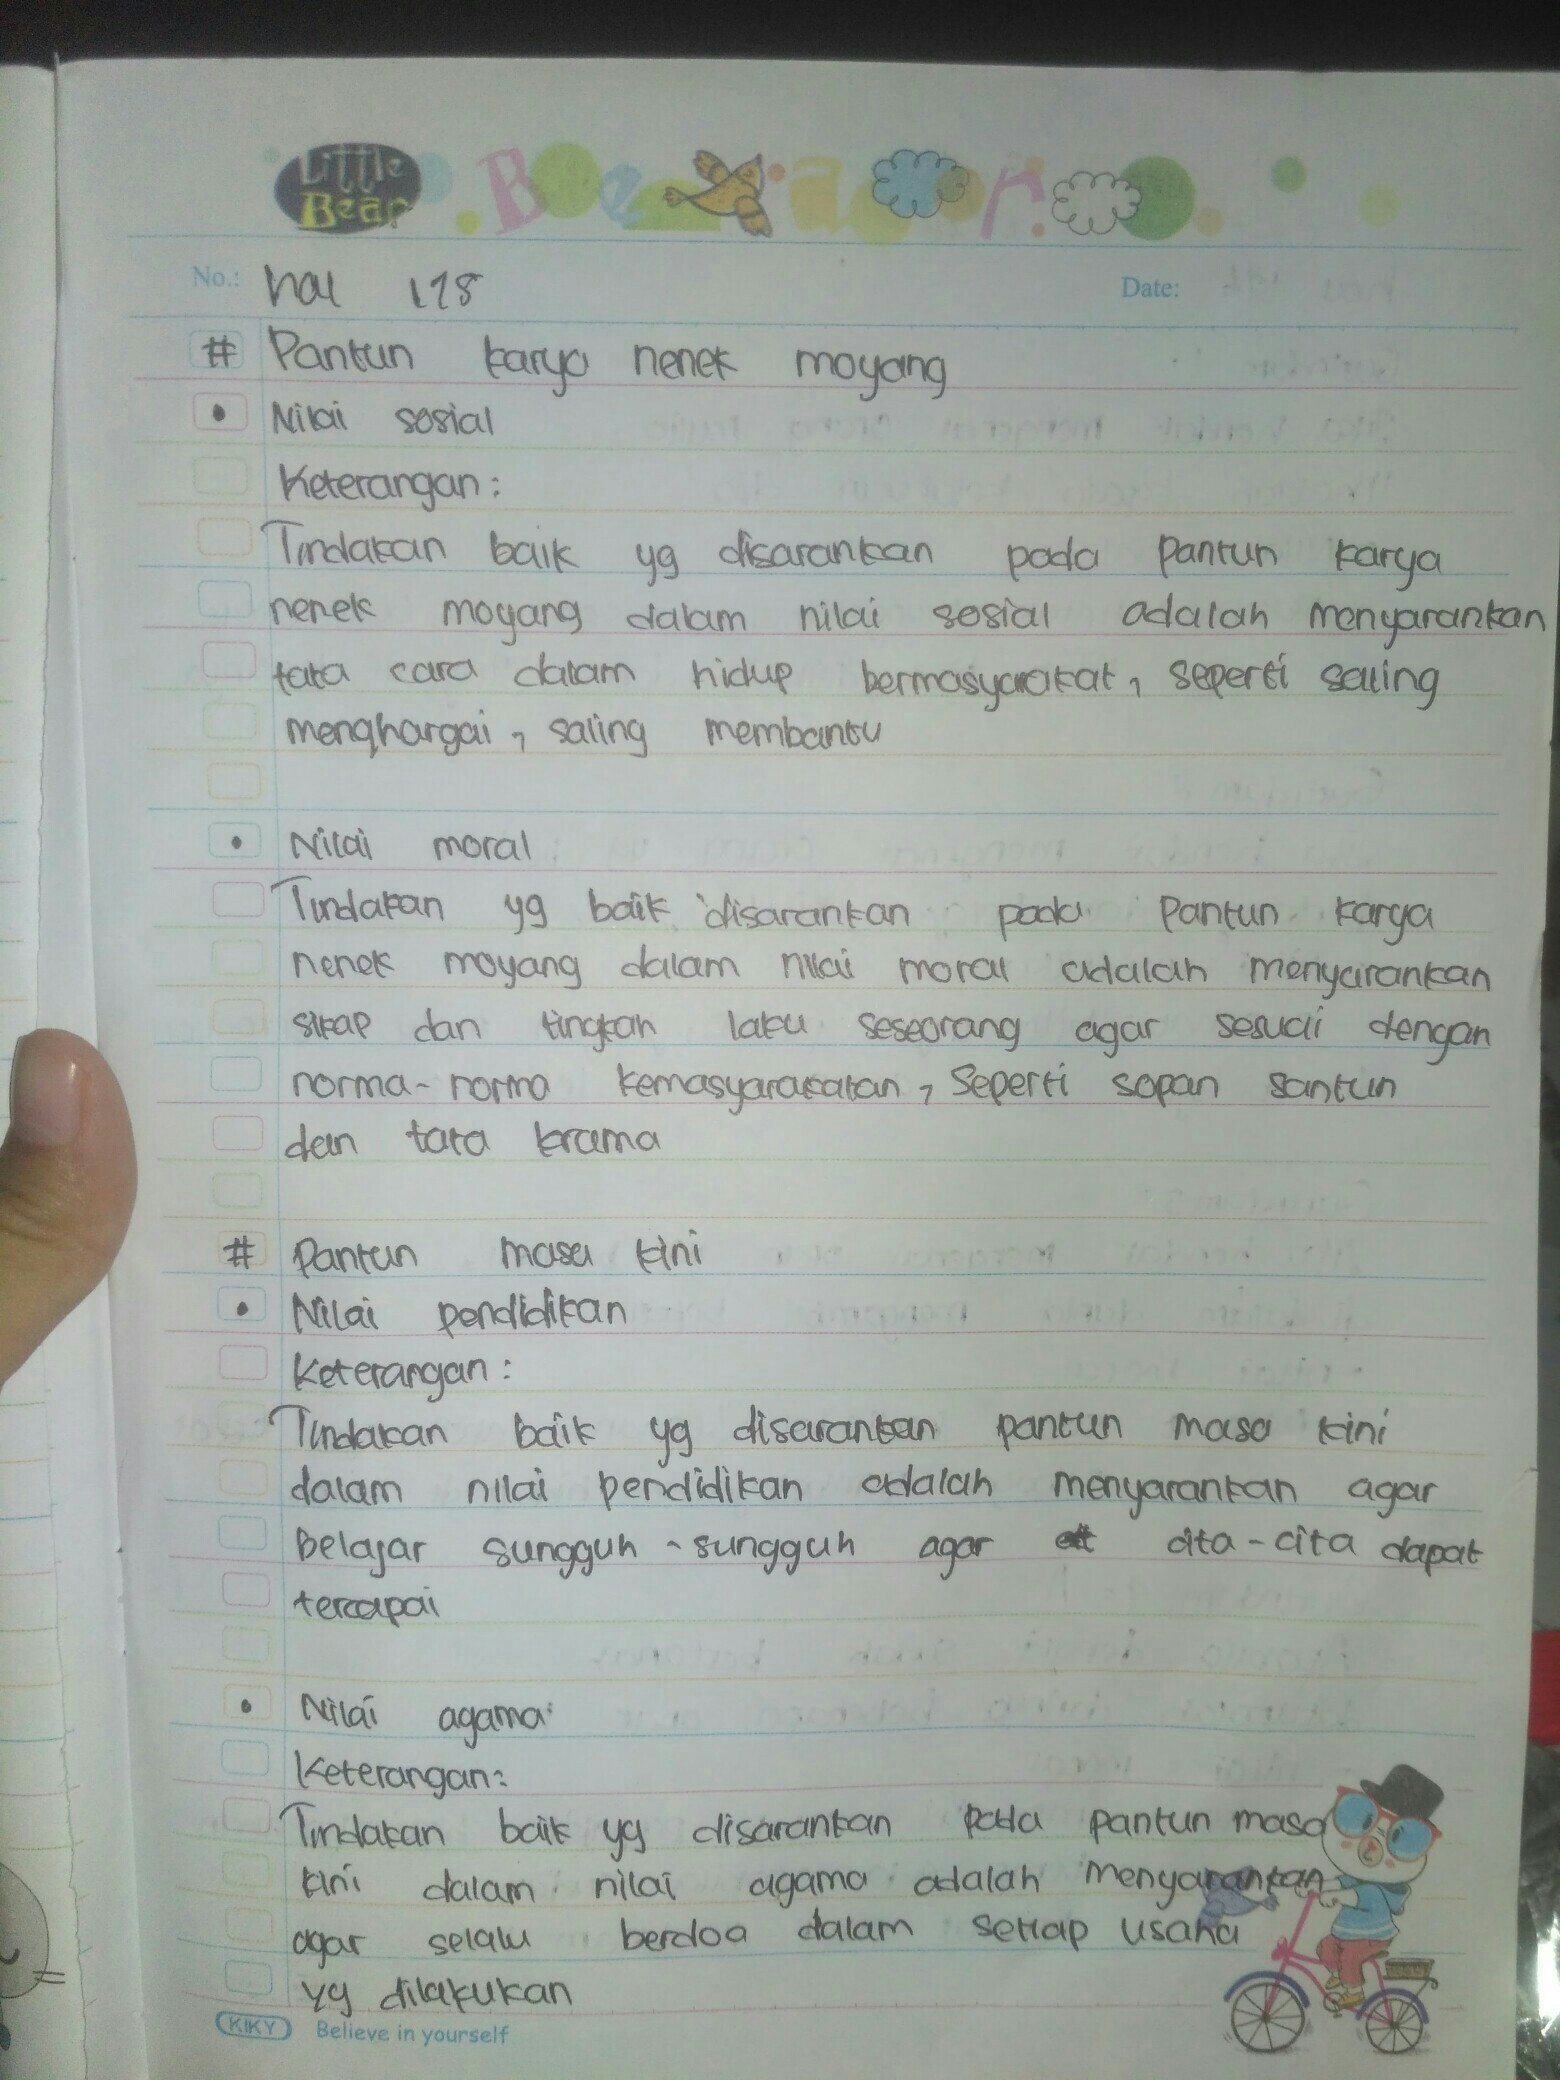 Little
Bear
No.: hal 178 Date:
# Pantun karya nenek moyang
• Nilai sosial
Keterangan:
Tindakan baik yg disarankan pada pantun karya
nenek moyang dalam nilai sosial adalah menyarankan
tata cara dalam hidup bermasyarakat, seperti saling
menghargai, saling membantu
• Nilai moral
Tindakan yg baik disarankan pada pantun karya
nenek moyang dalam nilai moral adalah menyarankan
sikap dan tingkah laku seseorang agar sesuai dengan
norma-norma kemasyarakatan, seperti sopan santun
dan tata krama
# Pantun masa kini
• Nilai pendidikan
Keterangan:
Tindakan baik yg disarankan pantun masa kini
dalam nilai pendidikan adalah menyarankan agar
belajar sungguh-sungguh agar cita-cita dapat
tercapai
• Nilai agama:
Keterangan:
Tindakan baik yg disarankan pada pantun masa
kini dalam nilai agama adalah menyarankan
agar selalu berdoa dalam setiap usaha
yg dilakukan
KIKY Believe in yourself